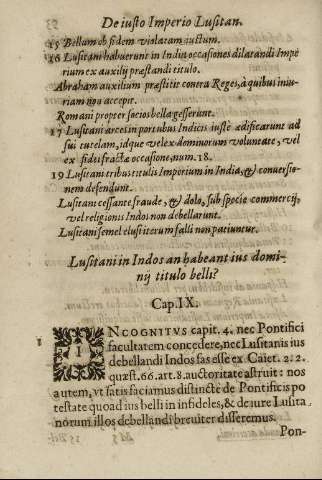 De iusto Imperio Lusitan.
15 Bellum ob fidem violatam iustum.
16 Lusitani habuerunt in India occasiones dilatandi Impe
rium ex auxilij præstandi titulo.
Abraham auxilium præstitit contra Reges, à quibus iniu-
riam non accepit.
Romani propter socios bella gesserunt.
17 Lusitani arces in portubus Indicis iustè ædificarunt ad
sui tutelam, idque vel ex domnorum voluntate, vel
ex fidei fractæ occasione, num. 18.
19 Lusitani tribus titulis Imperium in India, & conuersio-
nem defendunt.
Lusitani cessante fraude, & dolo, sub specie commercij,
vel religionis Indos non debellarunt.
Lusitani semel elusi iterum falli non patiuntur.
Lusitani in Indos an habeant ius domi-
nij titulo belli?
Cap. IX.
1 INCOGNITVS capit. 4. nec Pontifici
facultatem concedere, nec Lusitanis ius
debellandi Indos fas esse ex Caiet. 2. 2.
quæst. 66. art. 8. auctoritate astruit: nos
autem, vt satis faciamus distinctè de Pontificis po
testate quoad ius belli in infideles, & de iure Lusita
norum illos debellandi breuiter disseremus.
Pon-